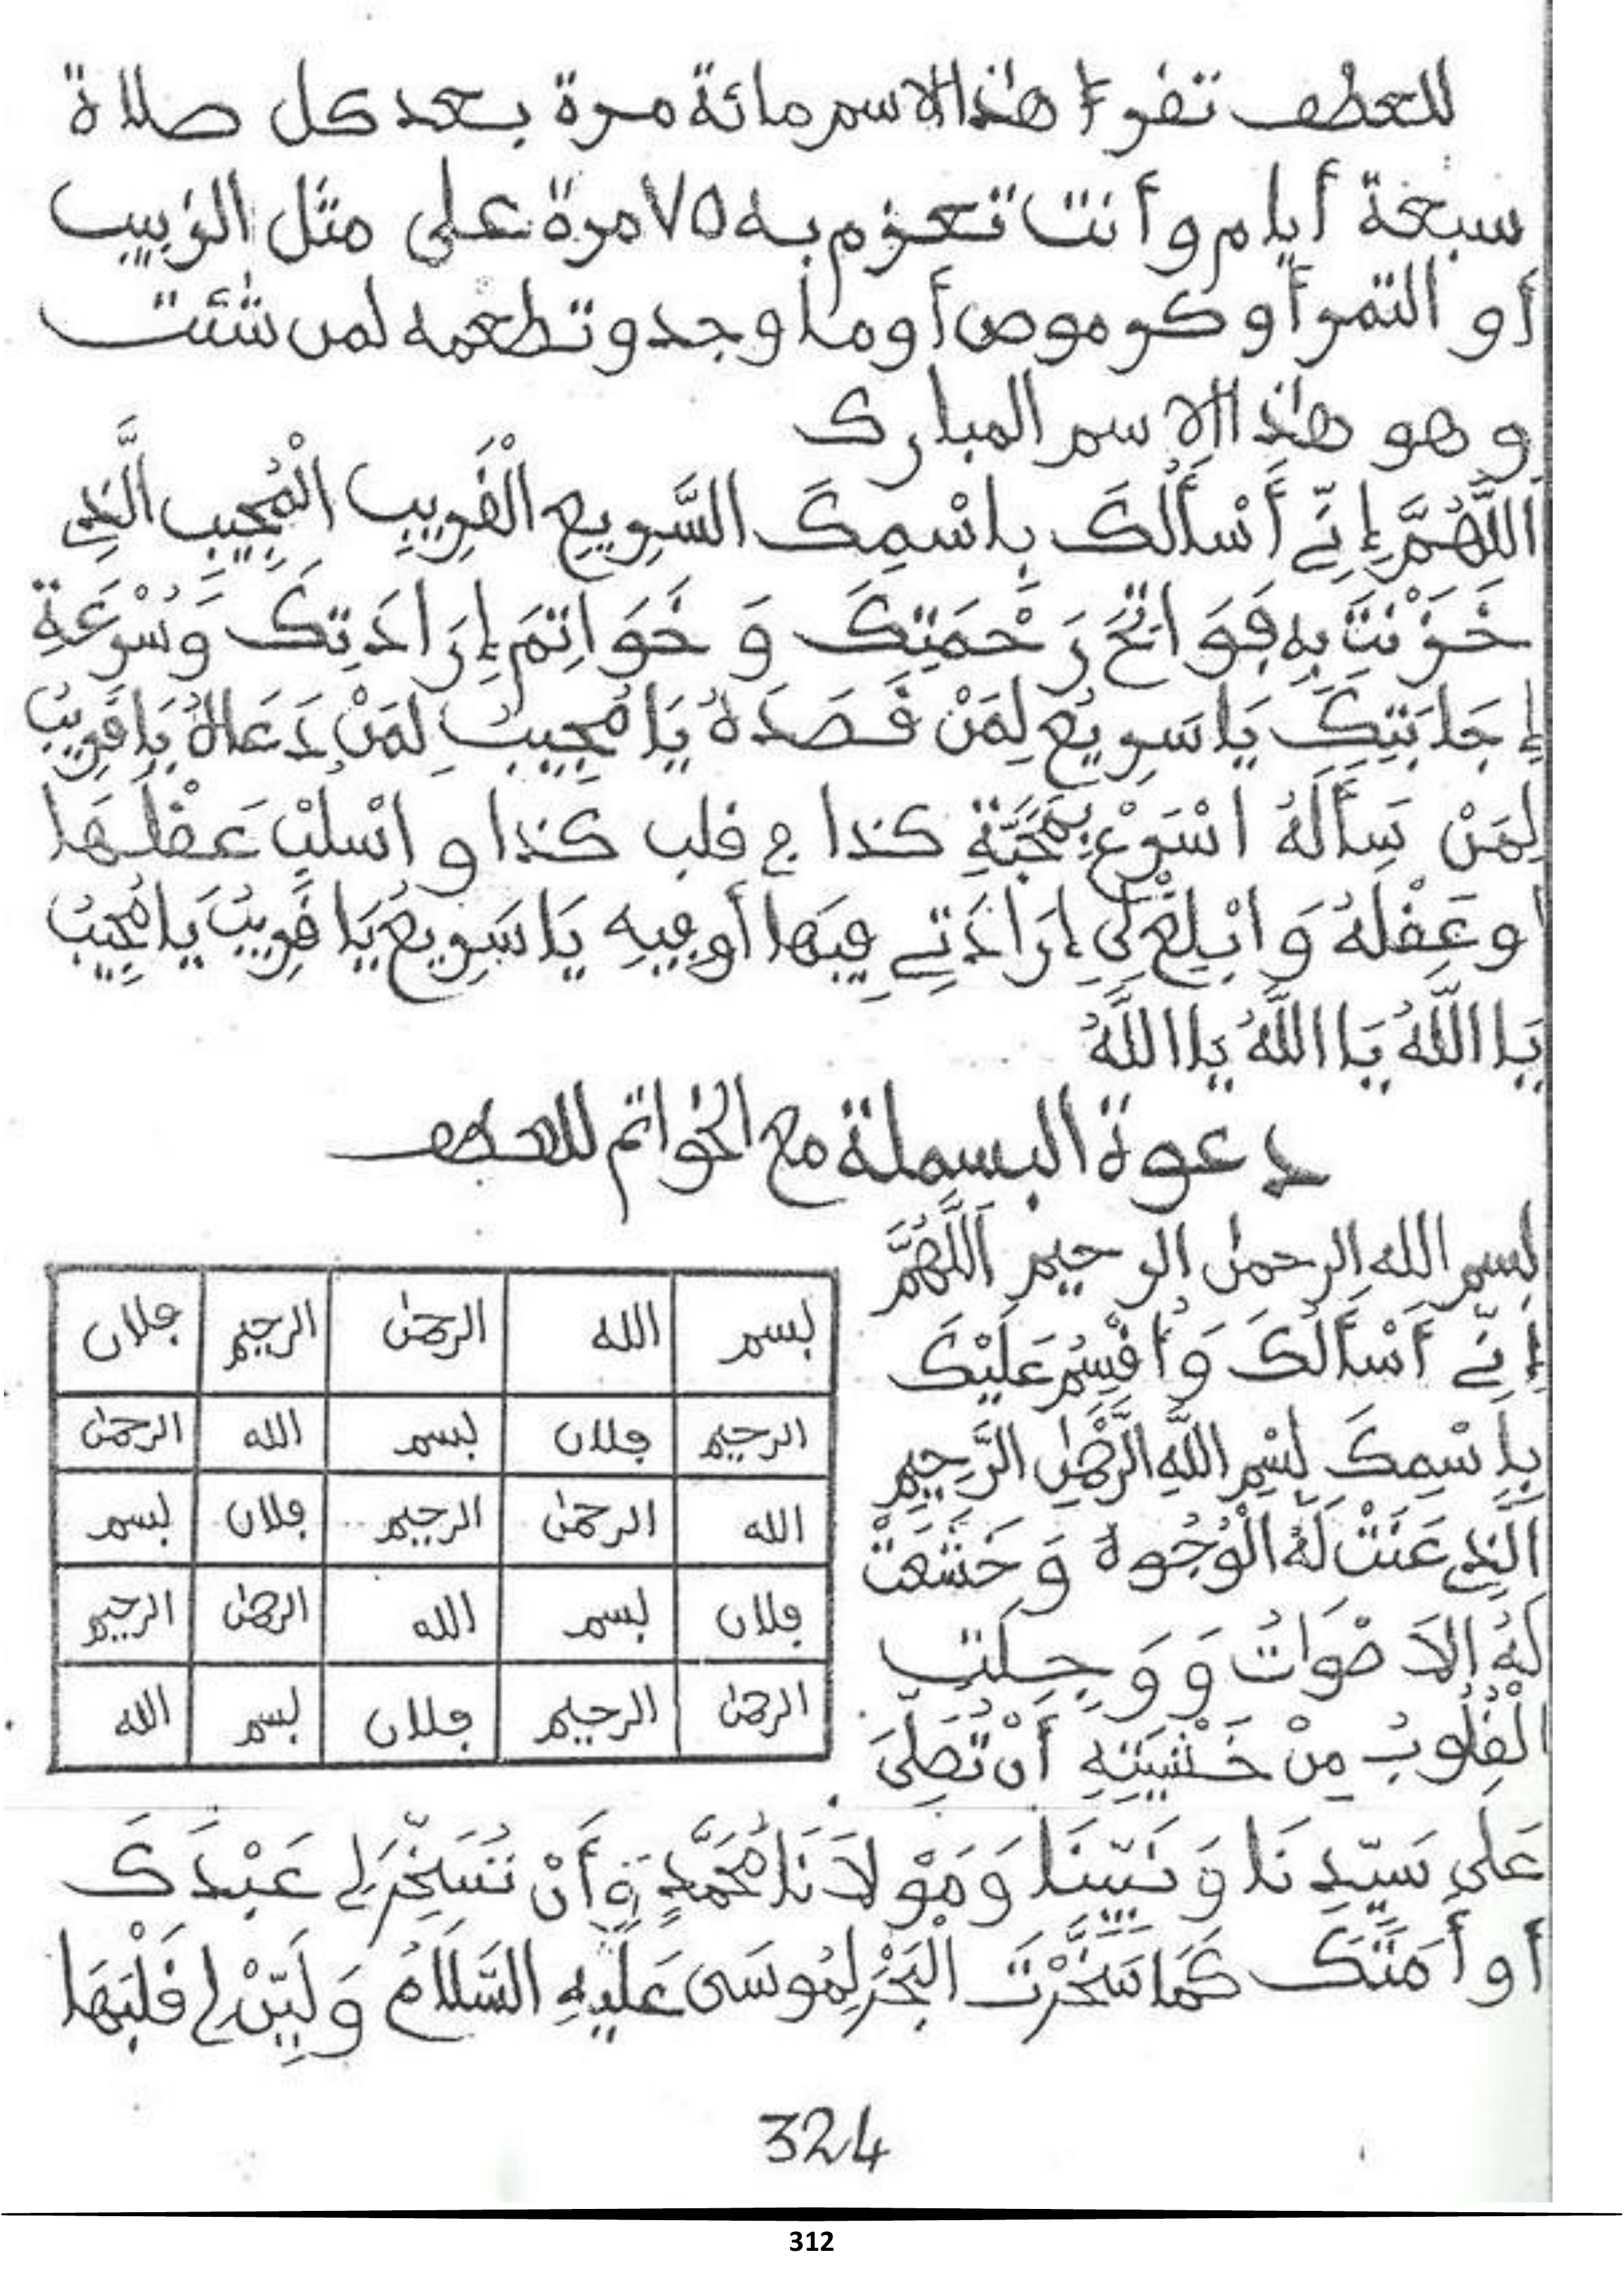 للعطف تقرءا هذا الاسم مائة مرة بعد كل صلاة
سبعة أيام وأنت تعزم به ٧٥ مرة على مثل الزبيب
أو التمر أو كرموص أو ما وجد وتطعمه لمن شئت
وهو هذا الاسم المبارك
اللَّهُمَّ إِنِّي أَسْأَلُكَ بِاسْمِكَ السَّرِيعِ الْقَرِيبِ الْمُجِيبِ الَّذِي
خَزَنْتَ بِهِ فَوَاتِحَ رَحْمَتِكَ وَ خَوَاتِمَ إِرَادَتِكَ وَسُرْعَةِ
إِجَابَتِكَ يَا سَرِيعُ لِمَنْ قَصَدَهُ يَا مُجِيبُ لِمَنْ دَعَاهُ يَا قَرِيبُ
لِمَنْ سَأَلَهُ اسْرِعْ بِمَحَبَّةِ كذا في قلب كذا و اسْلُبْ عَقْلَهَا
أو عَقْلَهُ وَابْلِغْ لِي إِرَادَتِي فِيهَا أو فِيهِ يَا سَرِيعُ يَا قَرِيبُ يَا مُجِيبُ
يَا اللَّهُ يَا اللَّهُ يَا اللَّهُ
دعوة البسملة مع الخواتم للعطف
بسم الله الرحمن الرحيم اَللَّهُمَّ
إِنِّي أَسْأَلُكَ وَأُقْسِمُ عَلَيْكَ
بِاسْمِكَ بِسْمِ اللَّهِ الرَّحْمٰنِ الرَّحِيمِ
الَّذِي عَنَتْ لَهُ الْوُجُوهُ وَخَشَعَتْ
لَهُ الاَصْوَاتُ وَ وَجِلَتِ
الْقُلُوبُ مِنْ خَشْيَتِهِ أَنْ تُصَلِّيَ
بسم الله الرحمن الرحيم فلان
الرحيم فلان بسم الله الرحمن
الله الرحمن الرحيم فلان بسم
فلان بسم الله الرحمن الرحيم
الرحمن الرحيم فلان بسم الله
عَلَى سَيِّدِنَا وَ نَبِيِّنَا وَمَوْلاَنَا مُحَمَّدٍ وَأَنْ تُسَخِّرَ لِي عَبْدَكَ
أو أَمَتَكَ كَمَا سَخَّرْتَ الْبَحْرَ لِمُوسَى عَلَيْهِ السَّلَامُ وَلَيِّنْ لِي قَلْبَهَا
324
312